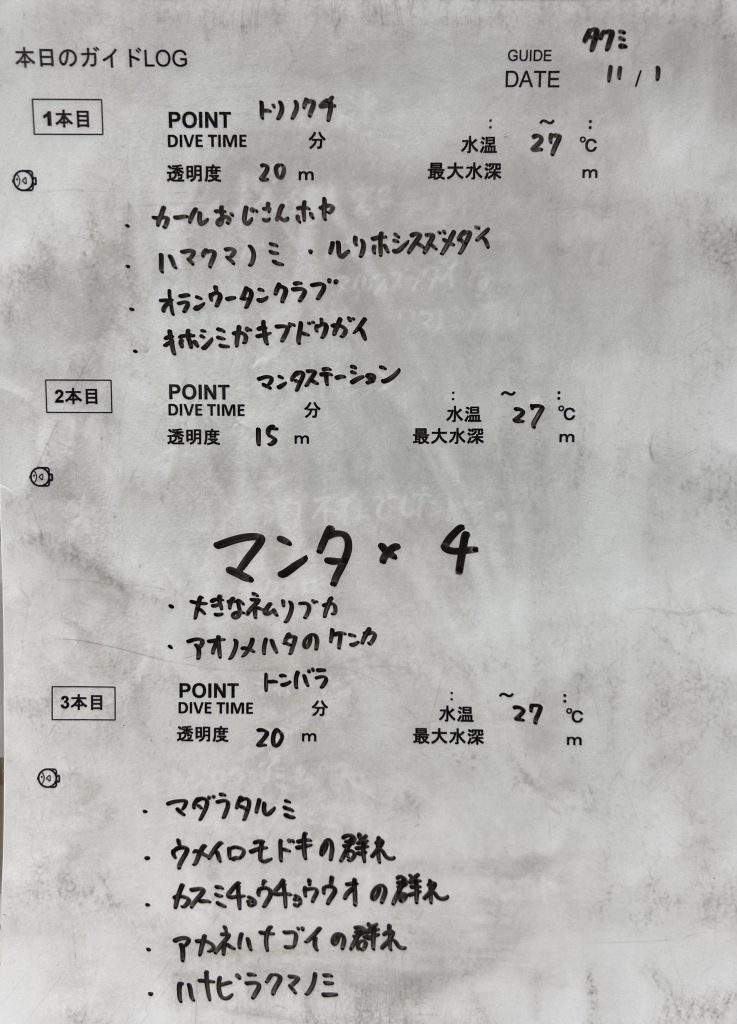 本日のガイドLOG
GUIDE タクミ
DATE 11 / 1
1本目
POINT トリノクチ
DIVE TIME 分 : ～ :
水温 27 ℃
透明度 20 m 最大水深 m
・カールおじさんホヤ
・ハマクマノミ ・ルリホシスズメダイ
・オランウータンクラブ
・キホシミガキブドウガイ
2本目
POINT マンタステーション
DIVE TIME 分 : ～ :
水温 27 ℃
透明度 15 m 最大水深 m
マンタ × 4
・大きなネムリブカ
・アオノメハタのケンカ
3本目
POINT トンバラ
DIVE TIME 分 : ～ :
水温 27 ℃
透明度 20 m 最大水深 m
・マダラタルミ
・ウメイロモドキの群れ
・カスミチョウチョウウオの群れ
・アカネハナゴイの群れ
・ハナビラクマノミ